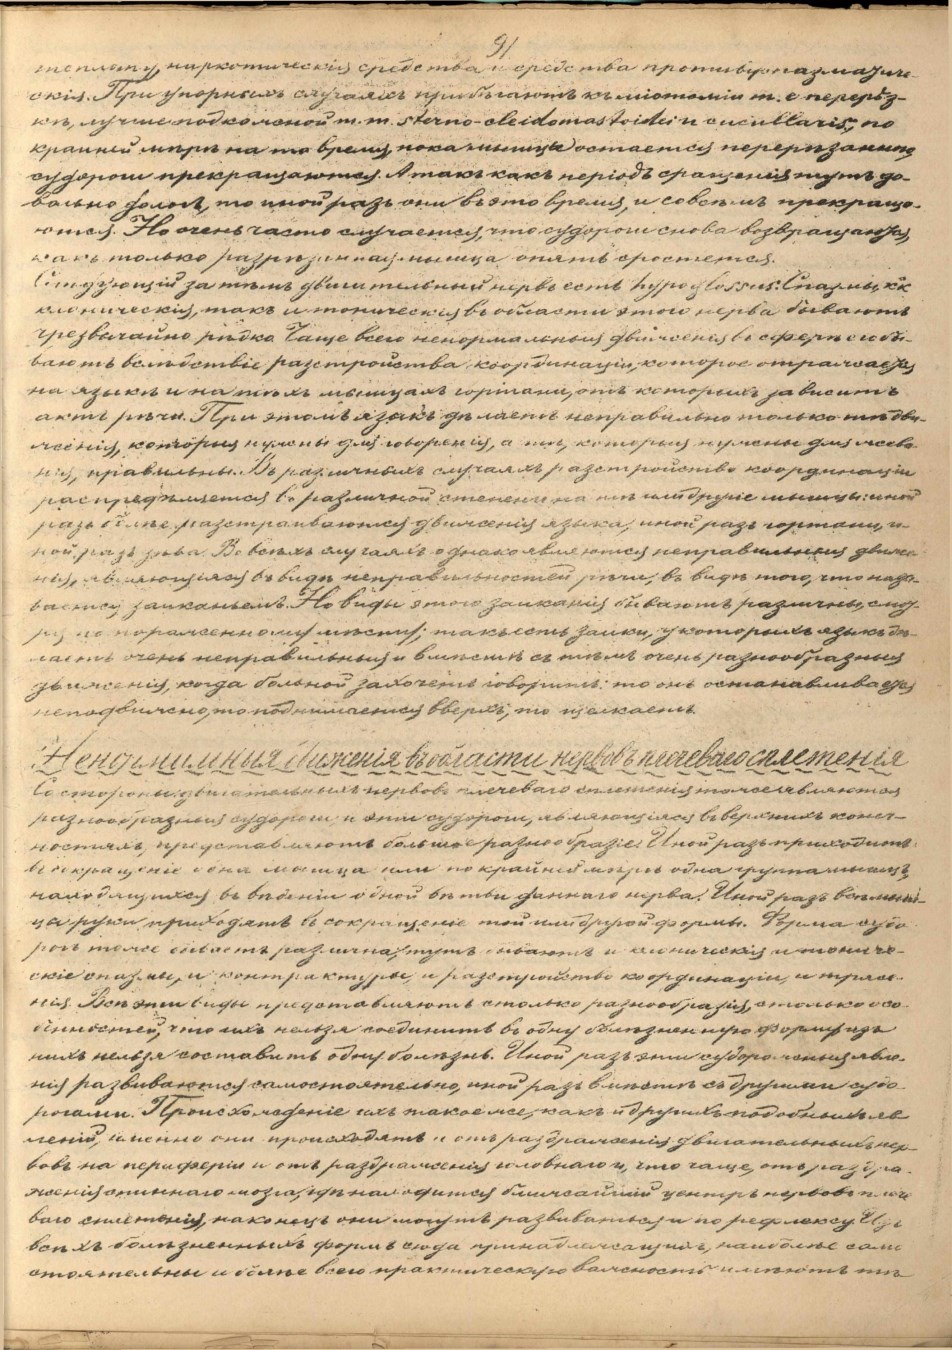 91
теплоту, наркотическія средства и средства противуспазматиче-
скія. При упорныхъ случаяхъ прибѣгаютъ къ міотоміи т. е перерѣз-
кѣ, лучше подкожной m. m. sterno-cleidomastoidei и cucullaris, по
крайней мѣрѣ на то время, пока мышца остается перерѣзанною
судороги прекращаются. А такъ какъ періодъ сращенія тутъ до-
вольно дологъ, то иной разъ они въ это время, и совсѣмъ прекраща-
ются. Но очень часто случается, что судороги снова возвращаются,
какъ только разрѣзанная мышца опять сростется.
Слѣдующій затѣмъ двигательный нервъ есть hypoglossus. Спазмы, какъ
клоническія, такъ и тоническія въ области этого нерва бываютъ
чрезвычайно рѣдко. Чаще всего ненормальныя движенія въ сферѣ его бы-
ваютъ вслѣдствіе разстройства координаціи, которое отражается
на языкѣ и на тѣхъ мышцахъ гортани, отъ которыхъ зависитъ
актъ рѣчи. При этомъ языкъ дѣлаетъ неправильно только тѣ дви-
женія, которыя нужны для говоренія, а тѣ, которыя нужны для жева-
нія, правильны. Въ различныхъ случаяхъ разстройство координаціи
распредѣляется въ различной степени на тѣ или другіе мышцы: иной
разъ болѣе разстраиваются движенія языка, иной разъ гортани, и-
ной разъ зѣва. Во всѣхъ случаяхъ однако являются неправильныя движе-
нія, являющіяся въ видѣ неправильностей рѣчи, въ видѣ того, что назы-
вается заиканьемъ. Но виды этого заиканія бываютъ различны, смот-
ря по пораженному мѣсту; такъ есть заики, у которыхъ языкъ дѣ-
лаетъ очень неправильныя и вмѣстѣ съ тѣмъ очень разнообразныя
движенія, когда больной захочетъ говорить: то онъ останавливается
неподвижно, то поднимается вверхъ, то щелкаетъ.
Ненормальныя движенія въ области нервовъ плечеваго сплетенія
Со стороны двигательныхъ нервовъ плечеваго сплетенія тоже являются
разнообразныя судороги и эти судороги, являющіяся въ верхнихъ конеч-
ностяхъ, представляютъ большое разнообразіе. Иной разъ приходитъ
въ сокращеніе одна мышца или по крайней мѣрѣ одна группа мышцъ,
находящихся въ вѣденіи одной вѣтви даннаго нерва. Иной разъ всѣ мыш-
ца руки приходятъ въ сокращеніе той или другой формы. Форма судо-
рогъ тоже бываетъ различна, тутъ бываютъ и клоническія и тониче-
скіе спазмы, и контрактуры, и разстройство координаціи, и трясе-
нія. Всѣ эти виды представляютъ столько разнообразія, столько осо-
бенностей, что ихъ нельзя соединить въ одну болѣзненную форму, изъ
нихъ нельзя составить одну болѣзнь. Иной разъ эти судорожныя явле-
нія развиваются самостоятельно, иной разъ вмѣстѣ съ другими судо-
рогами. Происхожденіе ихъ такое же, какъ и другихъ подобныхъ яв-
леній, именно они происходятъ и отъ раздраженія двигательныхъ нер-
вовъ на периферіи и отъ раздраженія головнаго и, что чаще, отъ раздра-
женія спиннаго мозга, гдѣ находится ближайшій центръ нервовъ плече-
ваго сплетенія, наконецъ они могутъ развиваться и по рефлексу. Изъ
всѣхъ болѣзненныхъ формъ сюда принадлежащихъ, наиболѣе само-
стоятельны и болѣе всего практическую важность имѣютъ тѣ